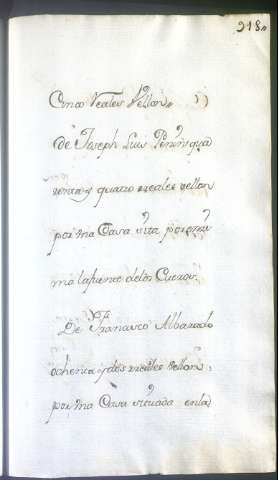 218.
Cinco reales Vellon
de Joseph Luis Peninqua
renta y quatro reales vellon
por una Casa sita
ma la fuente delos Cueros.
De Francisco Albarado
ochenta y dos reales vellon,
por una Casa situada enla